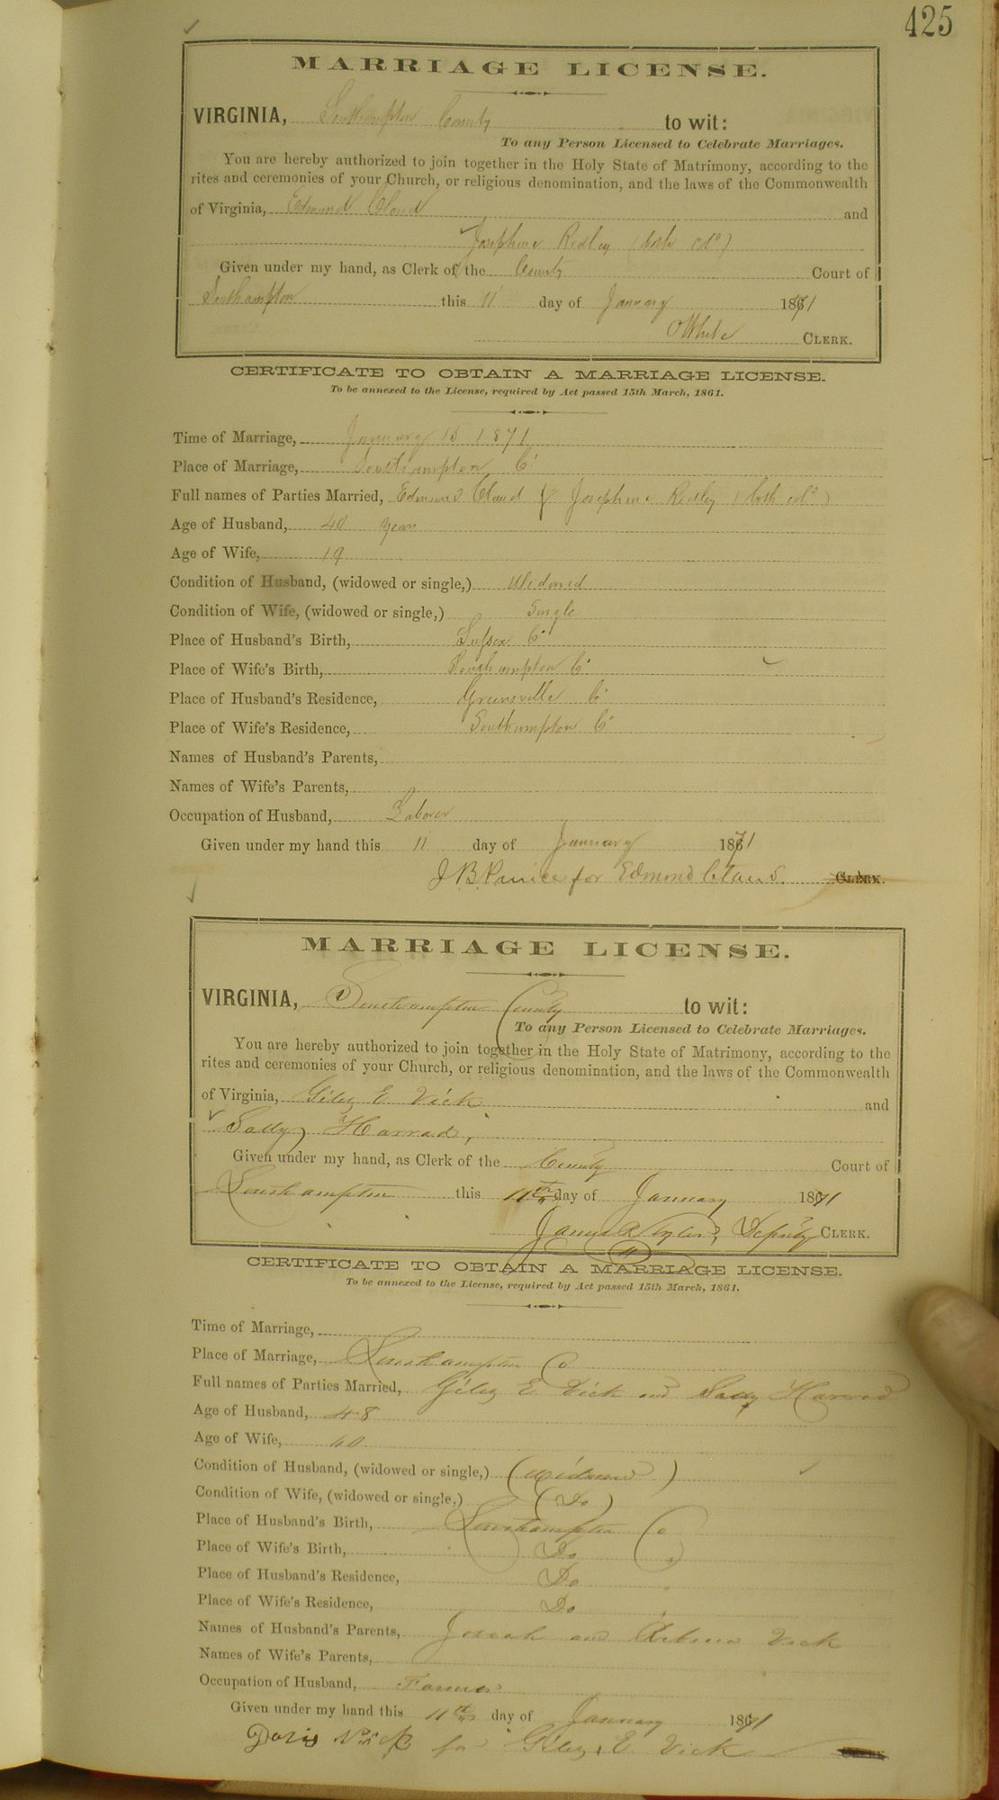 425
MARRIAGE LICENSE.
VIRGINIA, Southampton County to wit:
To any Person Licensed to Celebrate Marriages.
You are hereby authorized to join together in the Holy State of Matrimony, according to the
rites and ceremonies of your Church, or religious denomination, and the laws of the Commonwealth
of Virginia, Edmund Claud and
Josephine Ridley (both cld)
Given under my hand, as Clerk of the County Court of
Southampton this 11 day of January 1871
White CLERK.
CERTIFICATE TO OBTAIN A MARRIAGE LICENSE.
To be annexed to the License, required by Act passed 15th March, 1861.
Time of Marriage, January 15 1871
Place of Marriage, Southampton Co
Full names of Parties Married, Edmund Claud & Josephine Ridley (both cold)
Age of Husband, 40 years
Age of Wife, 19
Condition of Husband, (widowed or single,) Widowed
Condition of Wife, (widowed or single,) Single
Place of Husband's Birth, Sussex Co
Place of Wife's Birth, Southampton Co
Place of Husband's Residence, Greensville Co
Place of Wife's Residence, Southampton Co
Names of Husband's Parents,
Names of Wife's Parents,
Occupation of Husband, Laborer
Given under my hand this 11 day of January 1871
J B Prince for Edmond Claud. CLERK.
MARRIAGE LICENSE.
VIRGINIA, Southampton County to wit:
To any Person Licensed to Celebrate Marriages.
You are hereby authorized to join together in the Holy State of Matrimony, according to the
rites and ceremonies of your Church, or religious denomination, and the laws of the Commonwealth
of Virginia, Giley E Vick and
Sally Harrad,
Given under my hand, as Clerk of the County Court of
Southampton this 11th day of January 1871
James Deputy CLERK.
CERTIFICATE TO OBTAIN A MARRIAGE LICENSE.
To be annexed to the License, required by Act passed 15th March, 1861.
Time of Marriage,
Place of Marriage, Southampton Co
Full names of Parties Married, Giley E Vick and Sally Harrad
Age of Husband, 48
Age of Wife, 40
Condition of Husband, (widowed or single,) (Widowed)
Condition of Wife, (widowed or single,) (Do)
Place of Husband's Birth, Southampton Co
Place of Wife's Birth, Do
Place of Husband's Residence, Do
Place of Wife's Residence, Do
Names of Husband's Parents, Josiah and Vick
Names of Wife's Parents,
Occupation of Husband, Farmer
Given under my hand this 11th day of January 1871
Vick for Giley E. Vick